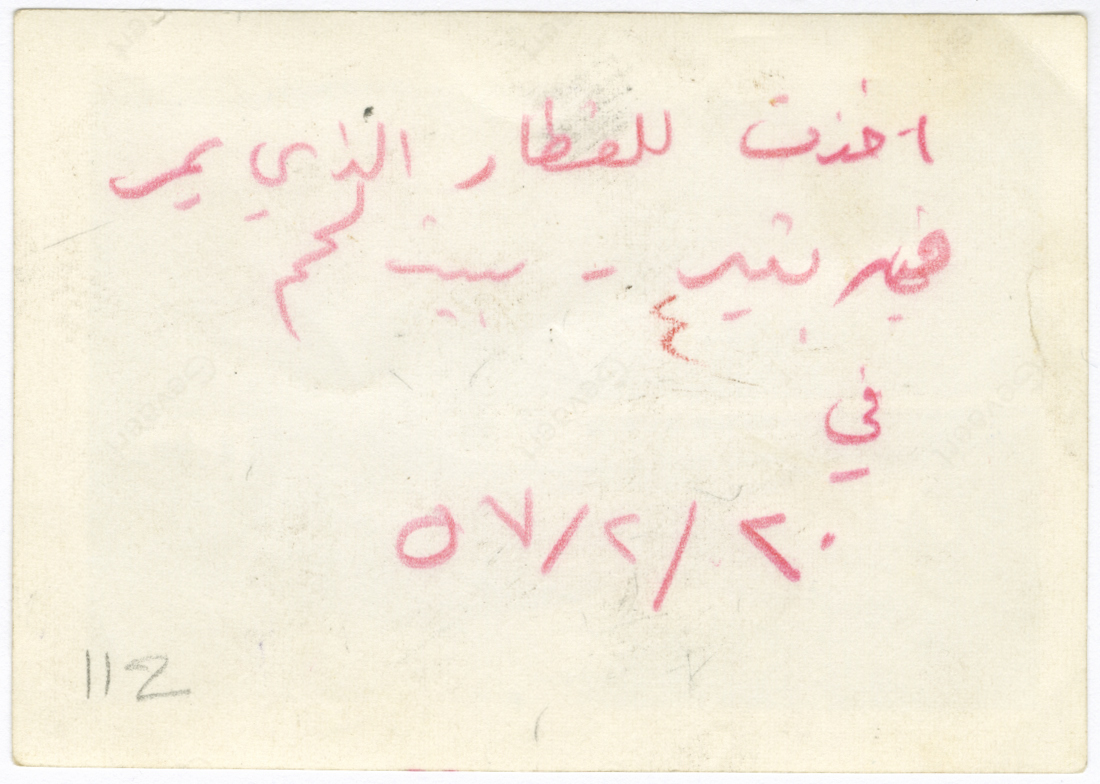 اخذت للقطار الذي يمر
فيه بتير - بيت لحم
٤
في
٢٠/٢/٥٧
112